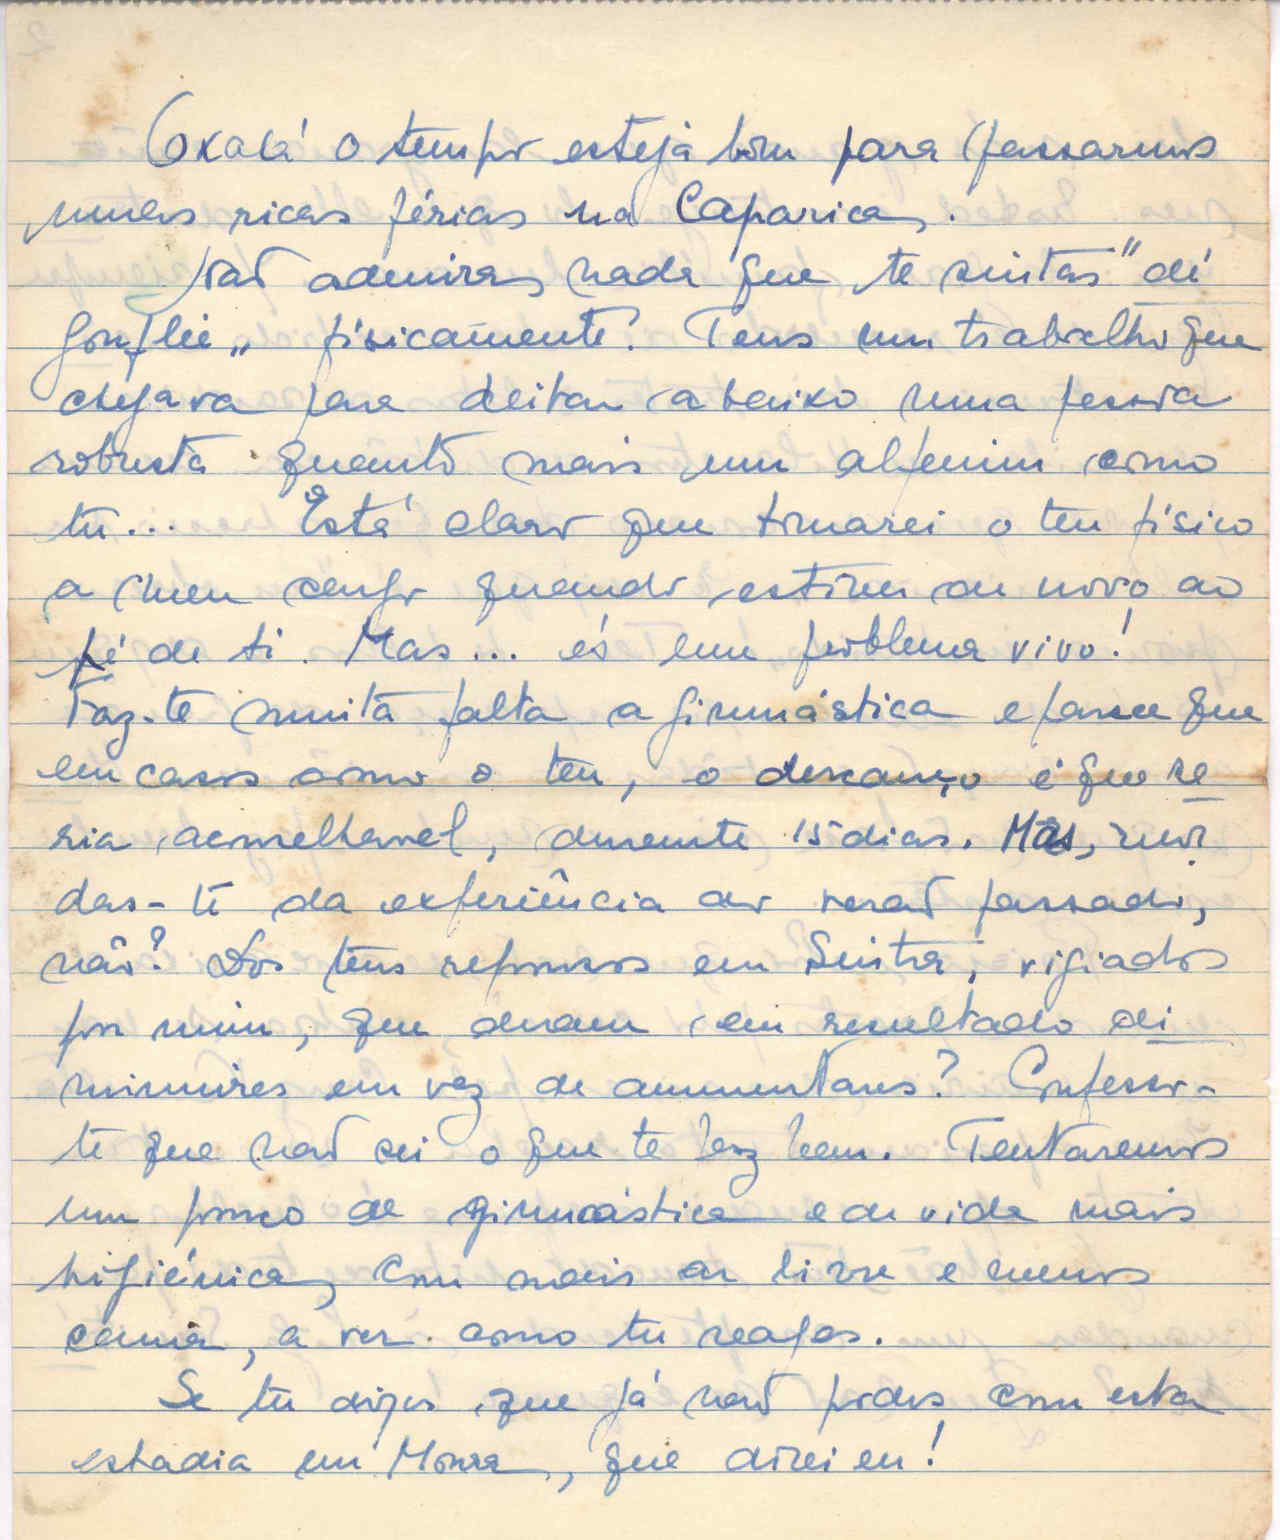 Oxalá o tempo esteja bom para passarmos
umas ricas férias na Caparica.
Não admira nada que te sintas "dé
gonflée" fisicamente! Tens um trabalho que
chegava para deitar abaixo uma pessoa
robusta quanto mais um alfenim como
tu... Está claro que tomarei o teu físico
a meu cargo quando estiver de novo ao
pé de ti. Mas... és um problema vivo!
Faz-te muita falta a gimnástica e parece que
em casos como o teu, o descanço é que se
ria aconselhavel, durante 15 dias. Mas, recor
das-te da experiência do verão passado,
não? Dos teus repousos em Sintra, vigiados
por mim, que deram em resultado di
minuires em vez de aumentares? Confesso-
te que não sei o que te faz bem. Tentaremos
um pouco de gimnástica e de vida mais
higiénica, com mais ar livre e menos
cama, a ver como tu reages.
Se tu dizes que já não podes com esta
estadia em Moura, que direi eu!